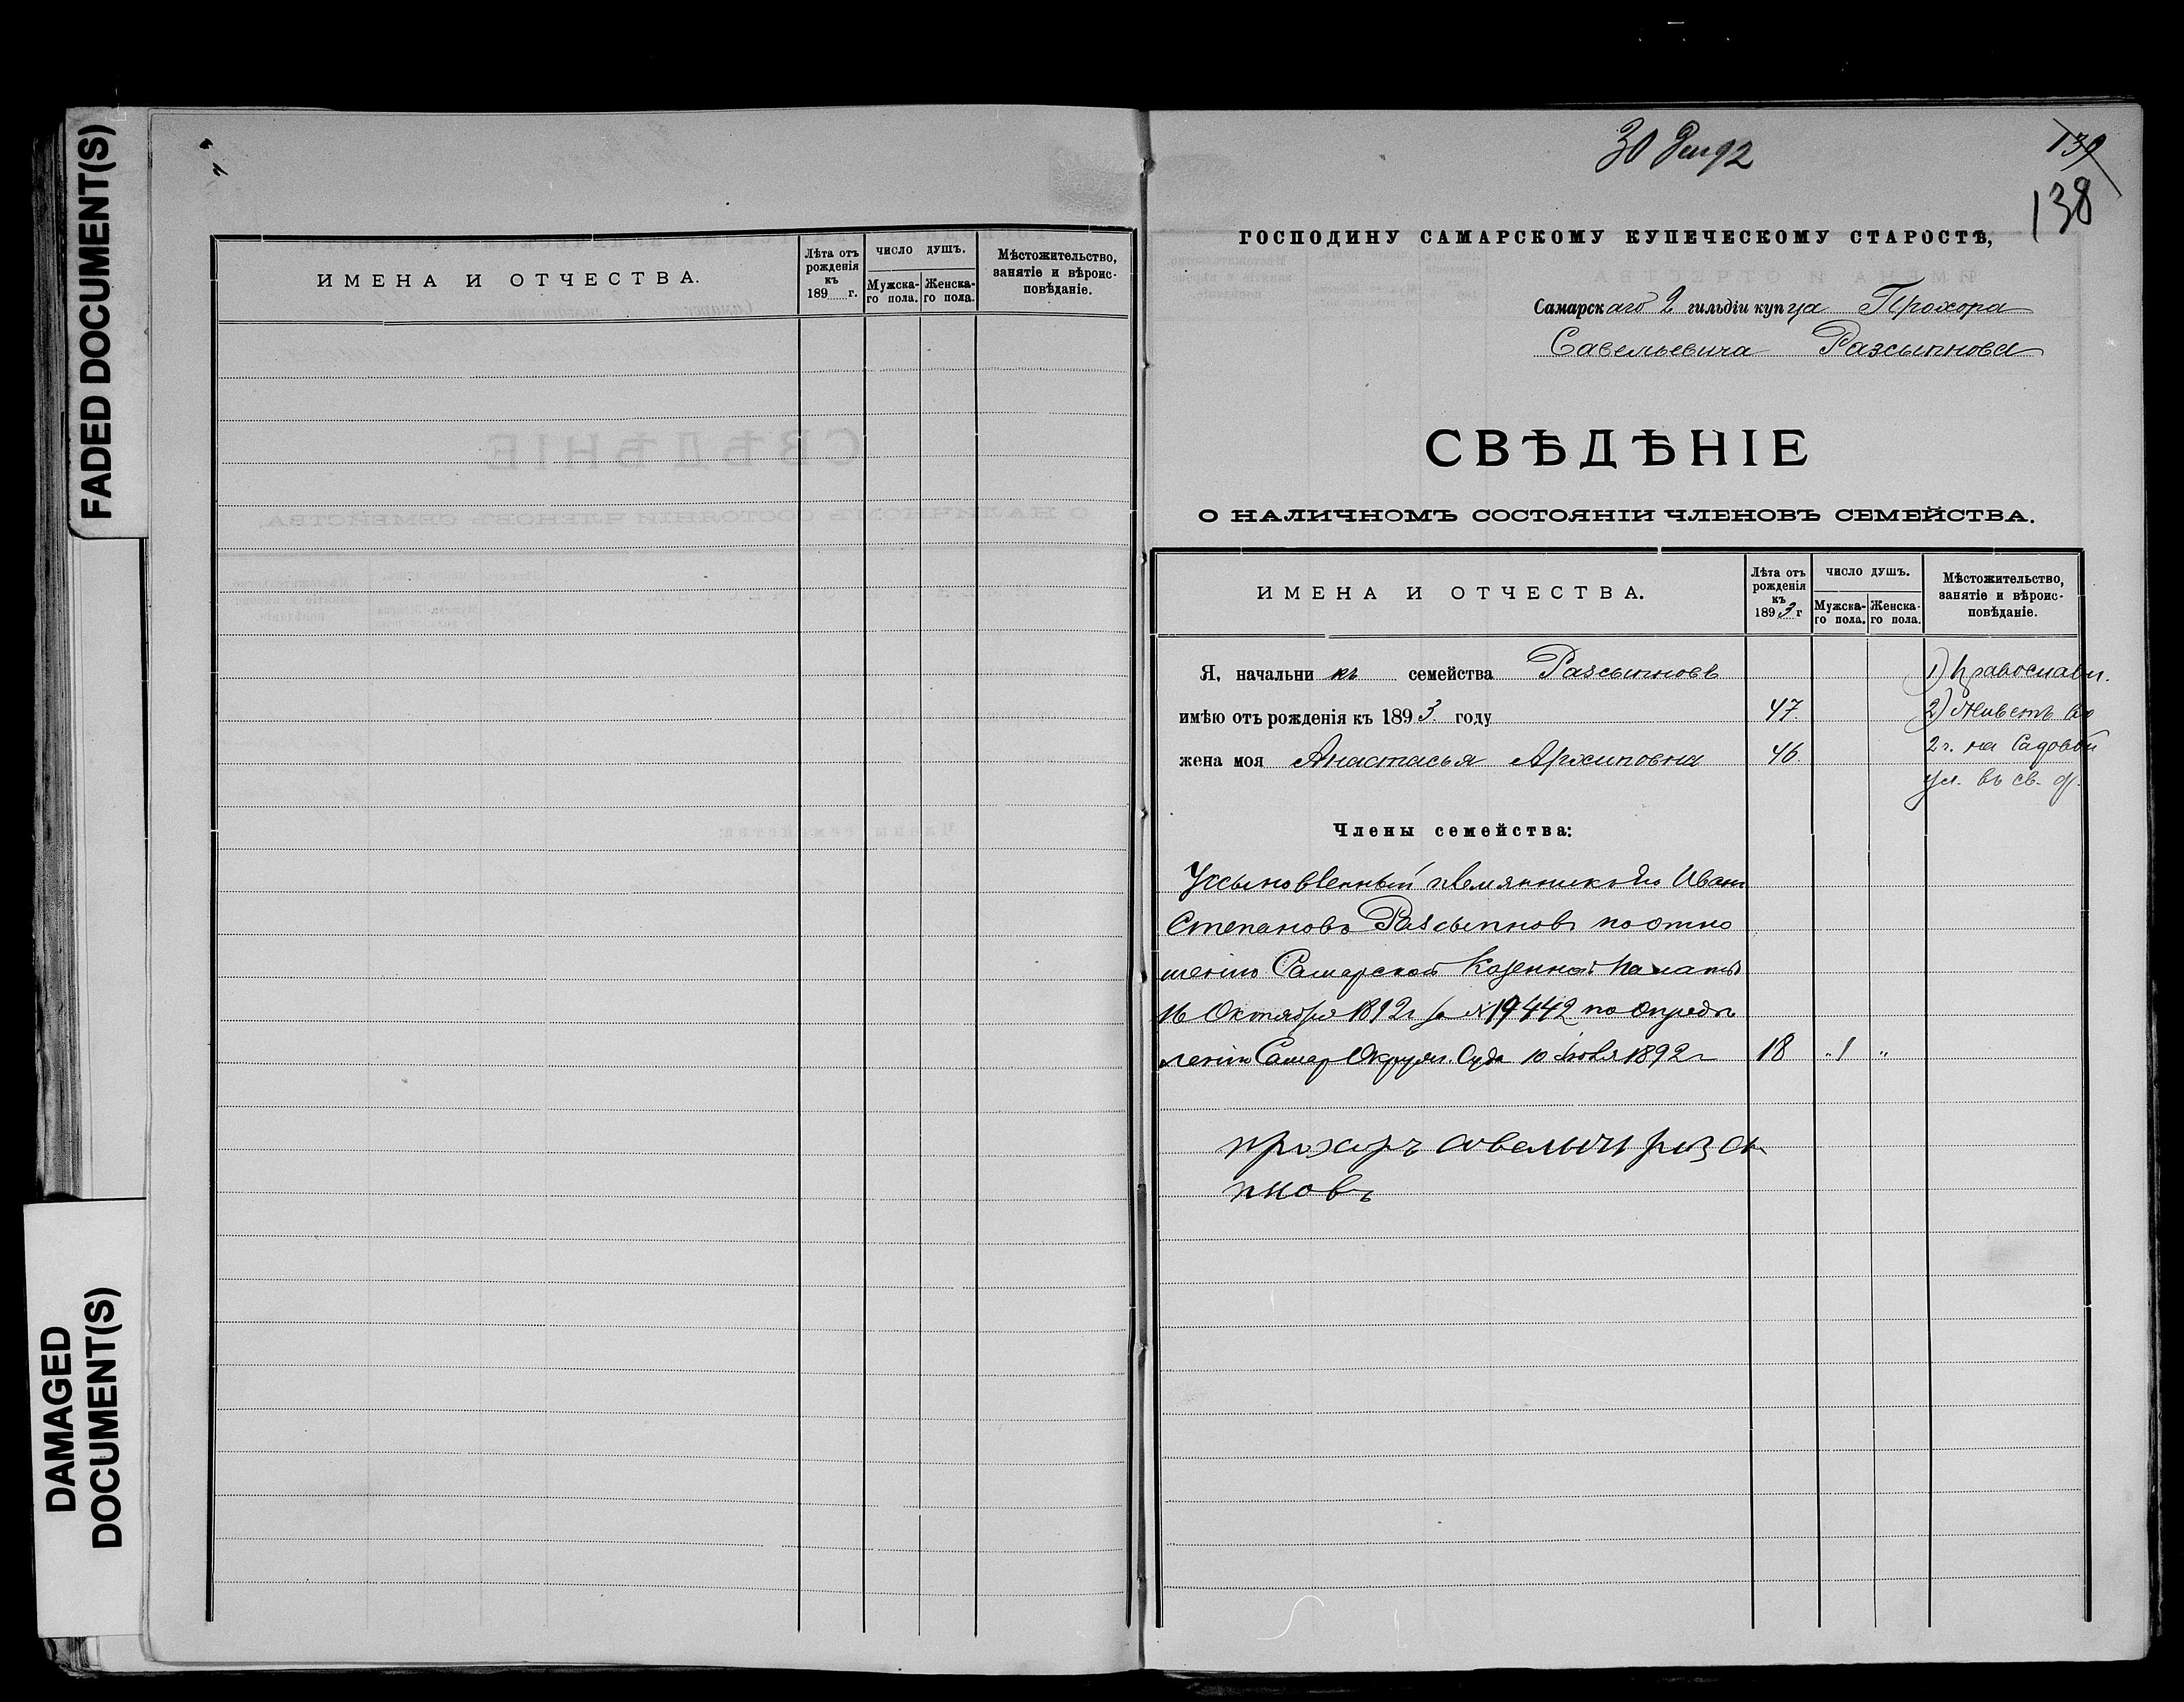 FADED DOCUMENT(S)
DAMAGED
DOCUMENT(S)
ИМЕНА И ОТЧЕСТВА.
Лѣта отъ
рожденія
къ
189 г.
ЧИСЛО ДУШЪ.
Мужска-
го пола.
Женска-
го пола.
Мѣстожительство,
занятіе и вѣроис-
повѣданіе.
30 Дек 92
139
138
ГОСПОДИНУ САМАРСКОМУ КУПЕЧЕСКОМУ СТАРОСТѢ,
Самарскаго 2 гильдіи купца Прохора
Савельевича Разсыпнова
СВѢДѢНІЕ
О НАЛИЧНОМЪ СОСТОЯНІИ ЧЛЕНОВЪ СЕМЕЙСТВА.
ИМЕНА И ОТЧЕСТВА.
Лѣта отъ
рожденія
къ
1893 г
ЧИСЛО ДУШЪ.
Мужска-
го пола.
Женска-
го пола.
Мѣстожительство,
занятіе и вѣроис-
повѣданіе.
Я, начальникъ семейства Разсыпновъ 1) Православн.
имѣю отъ рожденія къ 1893 году 47. 2) Живетъ во
жена моя Анастасья Архиповна 46. 2 ч. на Садовой
ул. въ св. д.
Члены семейства:
Усыновленный племянникъ Иванъ
Степановъ Разсыпновъ по отно
шенію Самарской Казенной Палаты
16 Октября 1892 г за № 19442 по Опредѣ
ленію Самар Окружн. Суда 10 Іюля 1892 г 18 " 1 "
прохоръ савельич разсы
пновъ